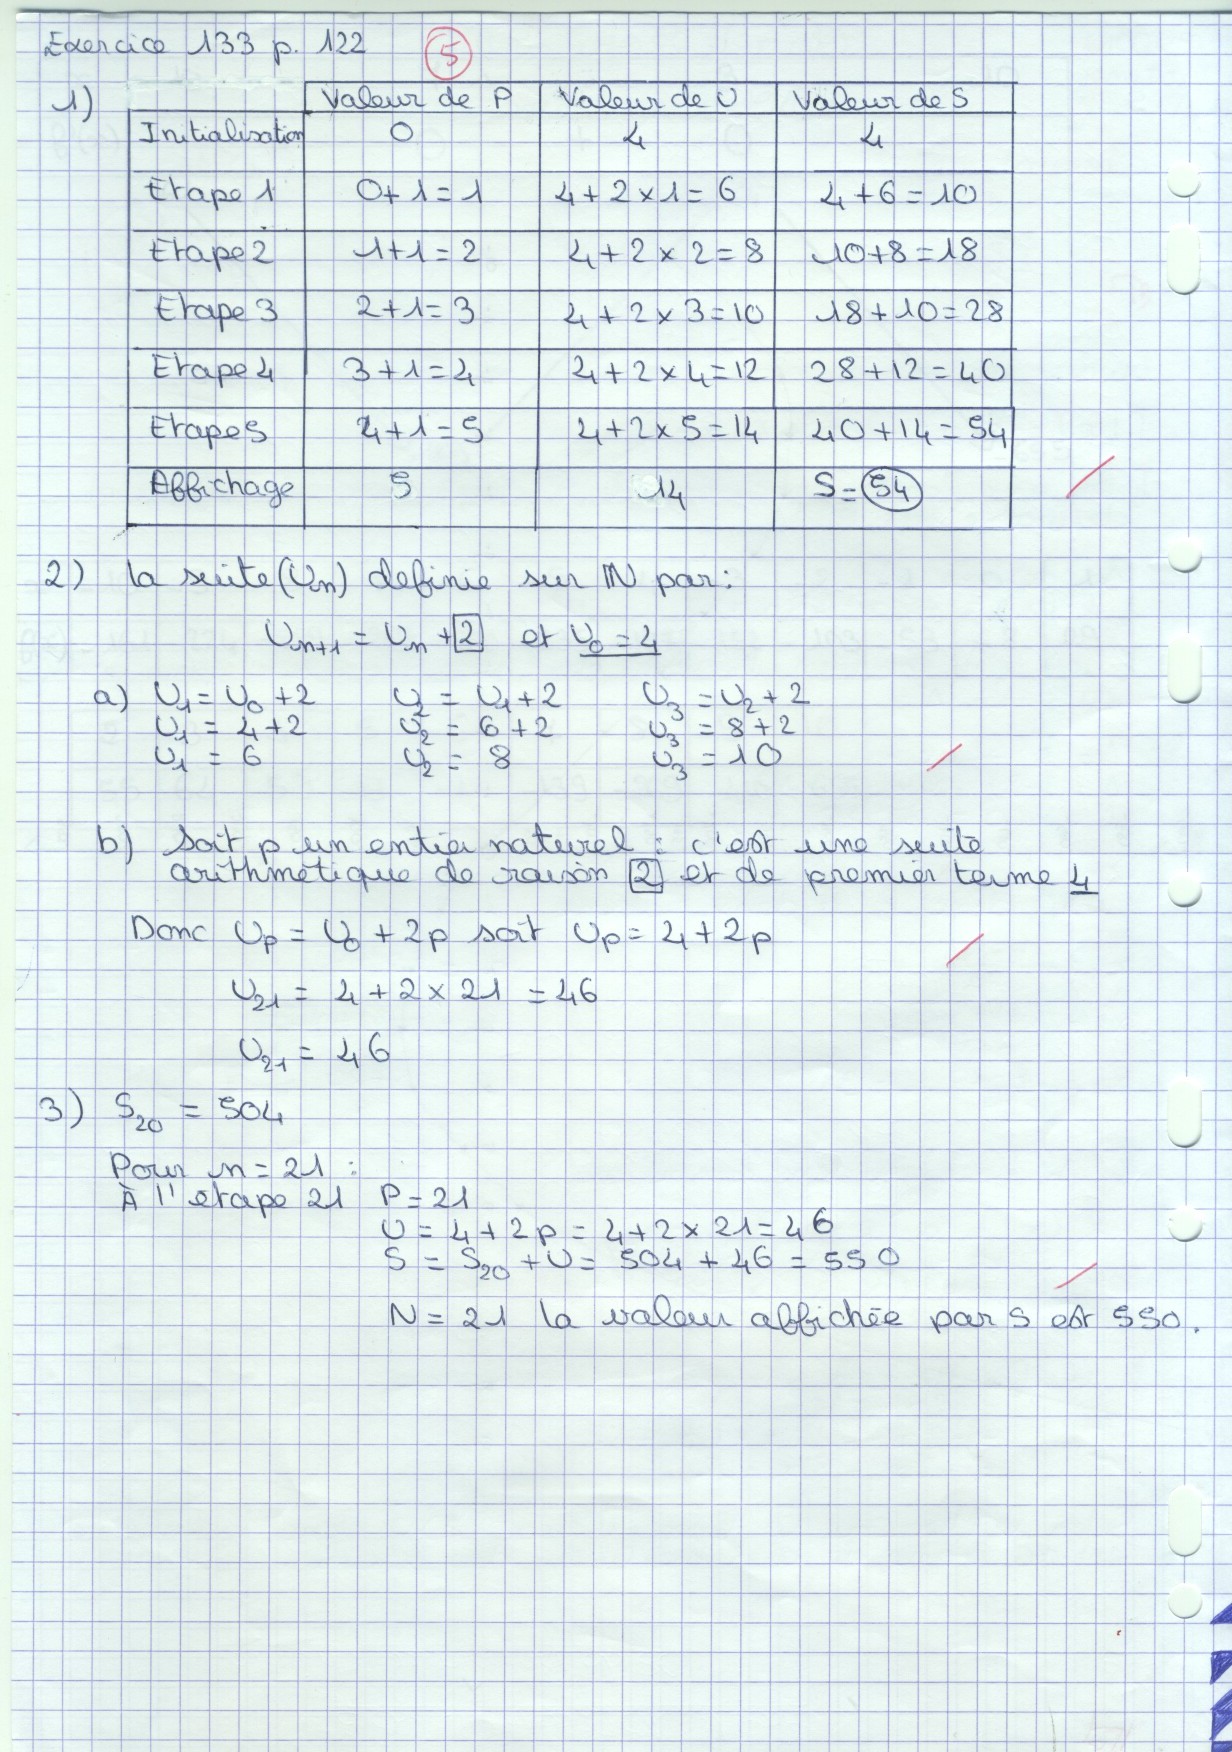 Exercice 133 p. 122
5
1)
Valeur de P Valeur de U Valeur de S
Initialisation 0 4 4
Etape 1 0+1=1 4+2×1=6 4+6=10
Etape 2 1+1=2 4+2×2=8 10+8=18
Etape 3 2+1=3 4+2×3=10 18+10=28
Etape 4 3+1=4 4+2×4=12 28+12=40
Etape 5 4+1=5 4+2×5=14 40+14=54
Affichage 5 14 S=54
2) la suite (Un) definie sur ℕ par:
Un+1 = Un + 2 et U0 = 4
a) U1 = U0 + 2 U2 = U1 + 2 U3 = U2 + 2
U1 = 4+2 U2 = 6+2 U3 = 8+2
U1 = 6 U2 = 8 U3 = 10
b) Soit p un entier naturel : c'est une suite
arithmétique de raison 2 et de premier terme 4
Donc Up = U0 + 2p soit Up = 4+2p
U21 = 4+2×21 = 46
U21 = 46
3) S20 = 504
Pour n = 21 :
À l'etape 21 P=21
U = 4+2p = 4+2×21=46
S = S20 + U = 504 + 46 = 550
N = 21 la valeur affichée par S est 550.